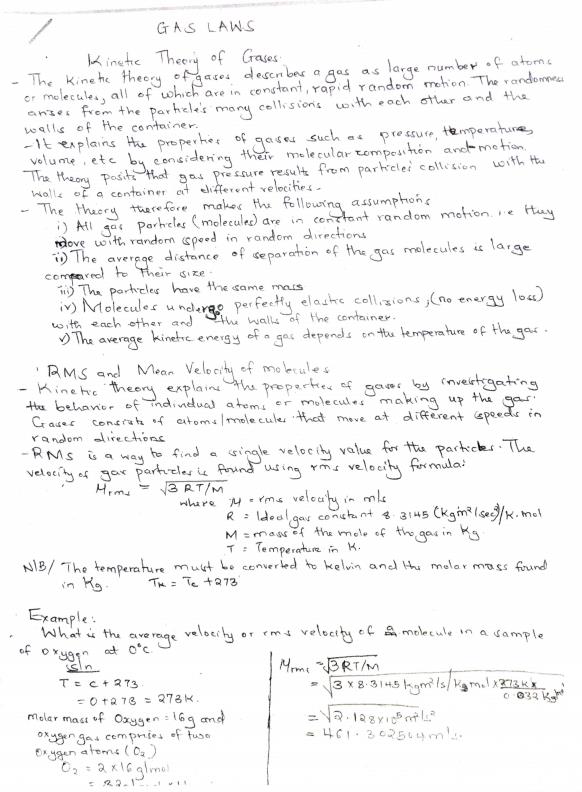 GAS LAWS
Kinetic Theory of Gases.
- The kinetic theory of gases describes a gas as large number of atoms
or molecules, all of which are in constant, rapid random motion. The randomness
arises from the particle's many collisions with each other and the
walls of the container.
- It explains the properties of gases such as pressure, temperature,
volume, etc by considering their molecular composition and motion.
The theory posits that gas pressure results from particles' collision with the
walls of a container at different velocities.
- The theory therefore makes the following assumptions
i) All gas particles (molecules) are in constant random motion. i.e they
move with random speed in random directions
ii) The average distance of separation of the gas molecules is large
compared to their size.
iii) The particles have the same mass
iv) Molecules undergo perfectly elastic collisions, (no energy loss)
with each other and the walls of the container.
v) The average kinetic energy of a gas depends on the temperature of the gas.
RMS and Mean Velocity of molecules
- Kinetic theory explains the properties of gases by investigating
the behavior of individual atoms or molecules making up the gas.
Gases consists of atoms/molecules that move at different speeds in
random directions
- RMS is a way to find a single velocity value for the particles. The
velocity of gas particles is found using rms velocity formula:
μrms = √3RT/M
where μ = rms velocity in m/s
R = Ideal gas constant 8.3145 (kgm²/sec²)/K.mol
M = mass of the mole of the gas in Kg
T = Temperature in K.
N/B/ The temperature must be converted to kelvin and the molar mass found
in Kg. Tk = Tc +273
Example:
What is the average velocity or rms velocity of a molecule in a sample
of oxygen at 0°C.
sln
T = c + 273.
= 0 + 273 = 273K.
Molar mass of Oxygen = 16g and
oxygen gas comprises of two
oxygen atoms (O₂)
O₂ = 2 × 16 g/mol
μrms = √3RT/M
= √3 × 8.3145 kgm²/s/K mol × 273K ×
0.032 kg
= √2.128×10⁵ m²/s²
= 461.302504 m/s.